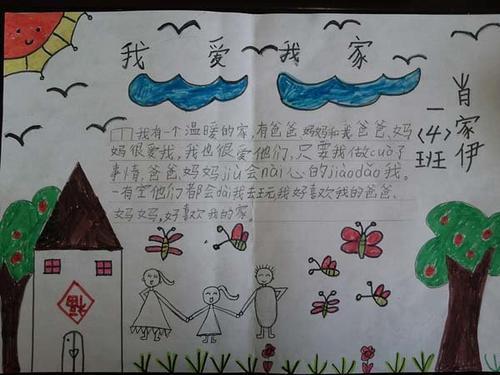 我爱我家
一〈4〉班
肖家伊
我有一个温暖的家,有爸爸妈妈和我爸爸、妈
妈很爱我,我也很爱他们,只要我做cuò了
事情,爸爸妈妈jiù会nài心的jiāodǎo我。
一有空他们都会dài我去玩,我好喜欢我的爸爸、
妈妈,好喜欢我的家。
福